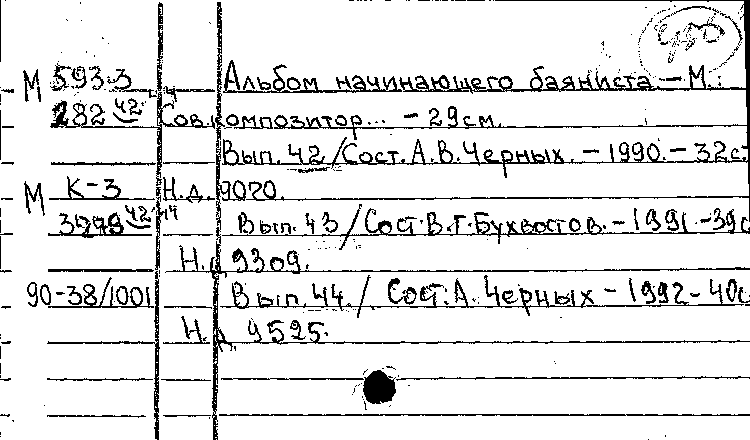 М 593.3 Альбом начинающего баяниста. – М.:
282 42-44 Сов.композитор... – 29см.
Вып. 42 / Сост. А.В.Черных. – 1990. – 32с.
М К-3 Н.д. 9020.
42-44 Вып. 43 / Сост В.Г.Бухвостов. – 1991. – 39с
Н.д 9309.
90-38/1001 Вып. 44. / Сост. А. Черных – 1992 – 40с
Н.д. 9525.